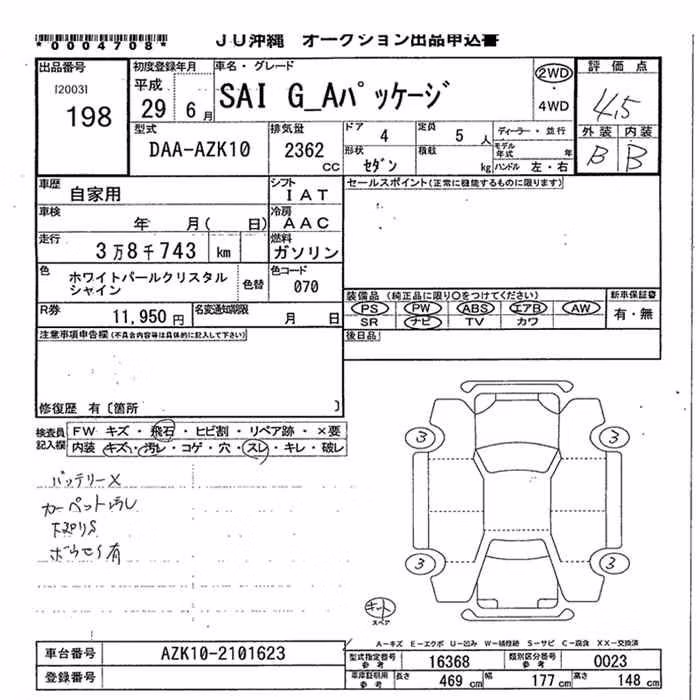 *0004708*
JU沖縄 オークション出品申込書
出品番号
[2003]
198
初度登録年月
平成
29 6月
車名・グレード
SAI G_Aパッケージ
2WD
4WD
評価点
4.5
外装 内装
B B
型式
DAA-AZK10
排気量
2362 cc
ドア 4
定員 5 人
ディーラー・並行
モデル年式 年
形状 セダン
積載 kg
ハンドル 左・右
車歴 自家用
シフト IAT
車検 年 月( 日)
冷房 AAC
走行 3万8千743 km
燃料 ガソリン
色 ホワイトパールクリスタルシャイン
色替
色コード 070
R券 11,950 円
名変通知期限 月 日
セールスポイント(正常に機能するものに限ります)
装備品 (純正品に限り○をつけてください)
PS PW ABS エアB AW
SR ナビ TV カワ
新車保証書
有・無
後日品
注意事項申告欄(不具合内容等は具体的に記入して下さい)
修復歴 有〔箇所 〕
検査員記入欄
FW キズ・飛石・ヒビ割・リペア跡・×要
内装 キズ・汚レ・コゲ・穴・スレ・キレ・破レ
バッテリーX
カーペット汚レ
下廻りS
ボウセイ有
3 3
3 3
キット
スペア
A-キズ E-エクボ U-凹み W-補修跡 S-サビ C-腐食 XX-交換済
車台番号 AZK10-2101623
登録番号
型式指定番号 参考 16368
類別区分番号 参考 0023
車庫証明用 参考
長さ 469 cm
幅 177 cm
高さ 148 cm